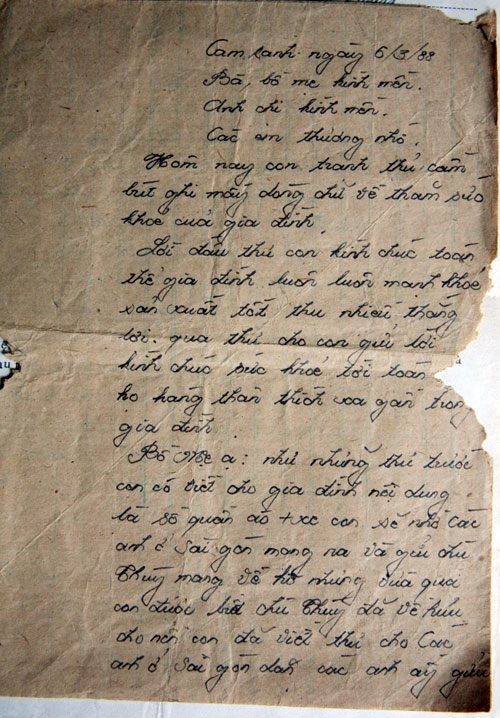 Cam ranh ngày 6/3/88
Bà, bố mẹ kính mến.
Anh chị kính mến.
Các em thương nhớ.
Hôm nay con tranh thủ cầm
bút ghi mấy dòng chữ về thăm sức
khoẻ cuả gia đình
Lời đầu thư con kính chúc toàn
thể gia đình luôn luôn mạnh khoẻ
sản xuất tốt thu nhiều thắng
lợi. qua thư cho con gửi lời
kính chúc sức khoẻ tới toàn
họ hàng thân thích xa gần trong
gia đình
Bố Mẹ ạ: như những thư trước
con có viết cho gia đình nội dung
là số quần áo + xe con sẽ nhờ Các
anh ở Sài gòn mang ra và gửi chú
Thuỷ mang về hộ nhưng vừa qua
con được biết chú Thuỷ đã về hưu
cho nên con đã viết thư cho Các
anh ở Sài gòn dặn các anh ấy gửi